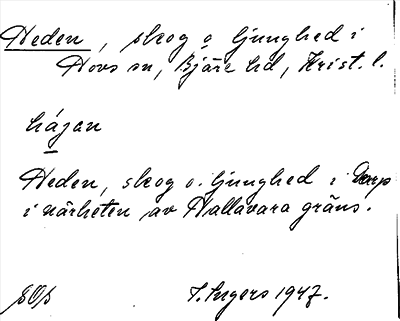 Heden, skog o ljunghed i
Hovs sn, Bjäre hd, Krist. l.
hájan
Heden, skog o. ljunghed i Darp
i närheten av Hallavara gräns.
I. Ingers 1947.